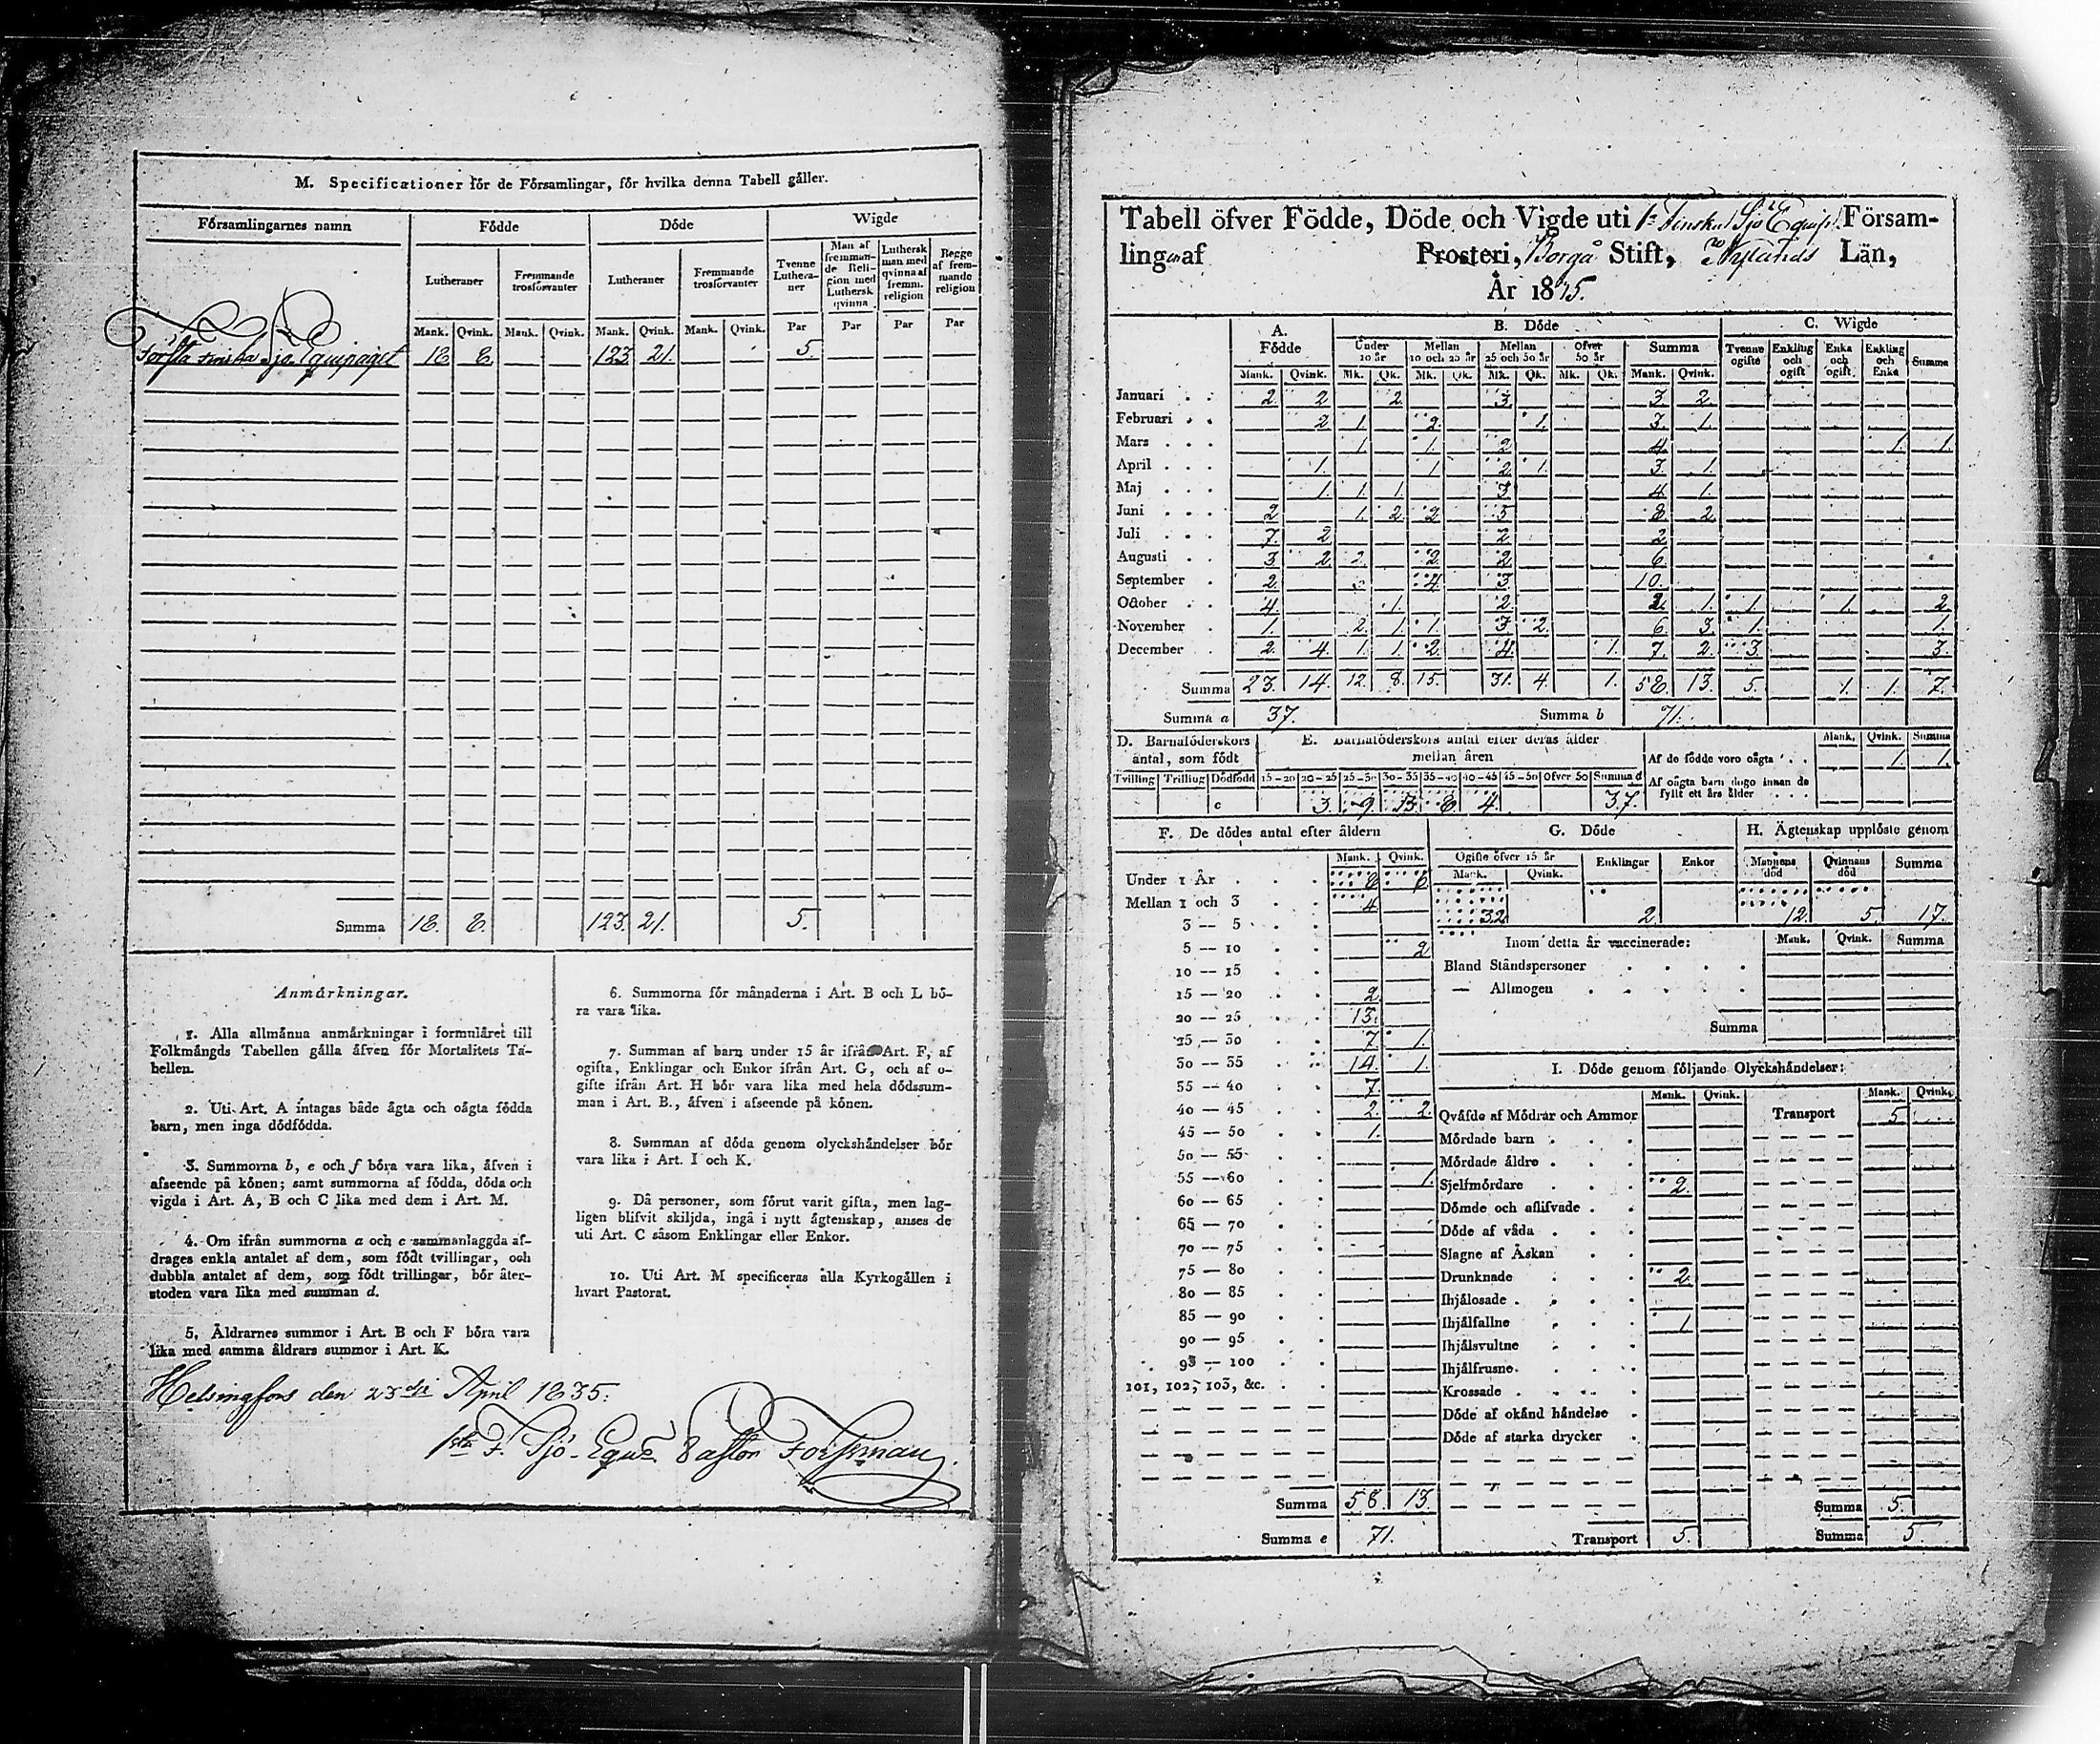 M. Specificationer fór de Fórsamlingar, fór hvilka denna Tabell gåller.
Fórsamlingarnes namn
Fódde
Dóde
Wigde
Lutheraner
Fremmande trosförvanter
Lutheraner
Fremmande trosförvanter
Tvenne Lutheraner
Man af fremmande Religion med Luthersk qvinna
Luthersk man med qvinna af fremm. religion
Begge af fremmande religion
Mank. Qvink. Mank. Qvink. Mank. Qvink. Mank. Qvink. Par Par Par Par
Första Finska Sjö Equipaget 18 8 123 21. 5.
Summa 18. 8. 123. 21. 5.
Anmärkningar.
1. Alla allmånna anmårkningar i formulåret till
Folkmångds Tabellen gålla åfven fór Mortalitets Ta-
bellen.
2. Uti Art. A intagas både ågta och oågta fódda
barn, men inga dódfódda.
3. Summorna b, e och f bóra vara lika, åfven i
afseende på kónen; samt summorna af fódda, dóda och
vigda i Art. A, B och C lika med dem i Art. M.
4. Om ifrån summorna a och c sammanlaggda af-
drages enkla antalet af dem, som fódt tvillingar, och
dubbla antalet af dem, som fódt trillingar, bór åter-
stoden vara lika med summan d.
5. Åldrarnes summor i Art. B och F bóra vara
lika med samma åldrars summor i Art. K.
6. Summorna fór månaderna i Art. B och L bó-
ra vara lika.
7. Summan af barn under 15 år ifrån Art. F, af
ogifta, Enklingar och Enkor ifrån Art. G, och af o-
gifte ifrån Art. H bór vara lika med hela dódssum-
man i Art. B., åfven i afseende på kónen.
8. Summan af dóda genom olyckshåndelser bór
vara lika i Art. I och K.
9. Då personer, som fórut varit gifta, men lag-
ligen blifvit skiljda, ingå i nytt ågtenskap, anses de
uti Art. C såsom Enklingar eller Enkor.
10. Uti Art. M specificeras alla Kyrkogållen i
hvart Pastorat.
Helsingfors den 23 April 1835.
1sta F. Sjö-Eque Pastor Forssman
Tabell öfver Födde, Döde och Vigde uti 1a Finska Sjö Equip. Försam-
lingen af Prosteri, Borgå Stift, Nylands Län,
År 18
A. Födde
B. Dóde
C. Wigde
Under 10 år
Mellan 10 och 25 år
Mellan 25 och 50 år
Öfver 50 år
Summa
Tvenne ogifte
Enkling och ogift
Enka och ogift
Enkling och Enka
Summa
Mank. Qvink. Mk. Qk. Mk. Qk. Mk. Qk. Mk. Qk. Mank. Qvink.
Januari 2. 2 2. 3. 3 2.
Februari 2 1. 2. 1. 3. 1.
Mars 1. 1. 2 4. 1. 1.
April 1. 1 2. 1. 3. 1.
Maj 1. 1. 1. 3. 4 1.
Juni 2 1. 2. 2 8. 2
Juli 7. 2 2 2
Augusti 3 2 2. 2. 2 6.
September 2. 4. 3. 10.
October 4. 1. 2. 2. 1. 1. 1. 2
November 1. 2. 1. 1. 3 2. 6. 3. 1. 1.
December 2. 4. 1. 1. 2. 4. 1. 7. 2. 3. 3.
Summa 23. 14. 12. 8. 15. 31. 4. 1. 58. 13. 5. 1. 1. 7.
Summa a 37. Summa b 71.
D. Barnafóderskors antal, som fódt
E. Barnafóderskors antal efter deras ålder mellan åren
Tvilling Trilling Dódfódd 15-20 20-25 25-30 30-35 35-40 40-45 45-50 Öfver 50 Summa d
c 3. 9 13. 8 4. 37.
Mank. Qvink. Summa
Af de fódde voro oågta 1. 1.
Af oågta barn dogo innan de fyllt ett års ålder
F. De dódes antal efter åldern
Mank. Qvink.
Under 1 År 8 6
Mellan 1 och 3 4
3 — 5
5 — 10 2
10 — 15
15 — 20 2
20 — 25 13.
25 — 30 7. 1.
30 — 35 14. 1.
35 — 40 7.
40 — 45 2. 2.
45 — 50 1.
50 — 55
55 — 60 1.
60 — 65
65 — 70
70 — 75
75 — 80
80 — 85
85 — 90
90 — 95
95 — 100
101, 102, 103, &c.
Summa 58. 13.
Summa e 71.
G. Dóde
Ogifte öfver 15 år
Enklingar
Enkor
Mank. Qvink.
32 2.
H. Ägtenskap upplóste genom
Mannens dód
Qvinnans dód
Summa
12. 5. 17.
Inom detta år vaccinerade: Mank. Qvink. Summa
Bland Ståndspersoner
— Allmogen
Summa
I. Dóde genom fóljande Olyckshåndelser:
Mank. Qvink. Mank. Qvink.
Qvåfde af Módrar och Ammor Transport 5
Mórdade barn
Mórdade åldre
Sjelfmórdare 2.
Dómde och aflifvade
Dóde af våda
Slagne af Åskan
Drunknade 2
Ihjålosade
Ihjålfallne 1
Ihjålsvultne
Ihjålfrusne
Krossade
Dóde af okånd håndelse
Dóde af starka drycker
Summa 5.
Transport 5. Summa 5